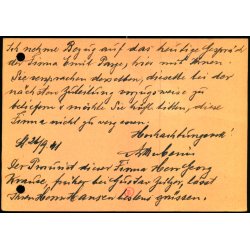 Ich nehme Bezug auf das heutige Gespräch
der Firma Ernst Page, hier mit Ihnen.
Sie versprachen derselben, dieselbe bei der
nächsten Zuteilung vorzugsweise zu
beliefern & möchte Sie höfl. bitten, diese
Firma nicht zu vergessen.
Hochachtungsvoll
26/9 41
Der Prokurist dieser Firma Herr Georg
Krause, früher bei Gustav lässt
Ihren Herrn Hansen bestens grüssen.